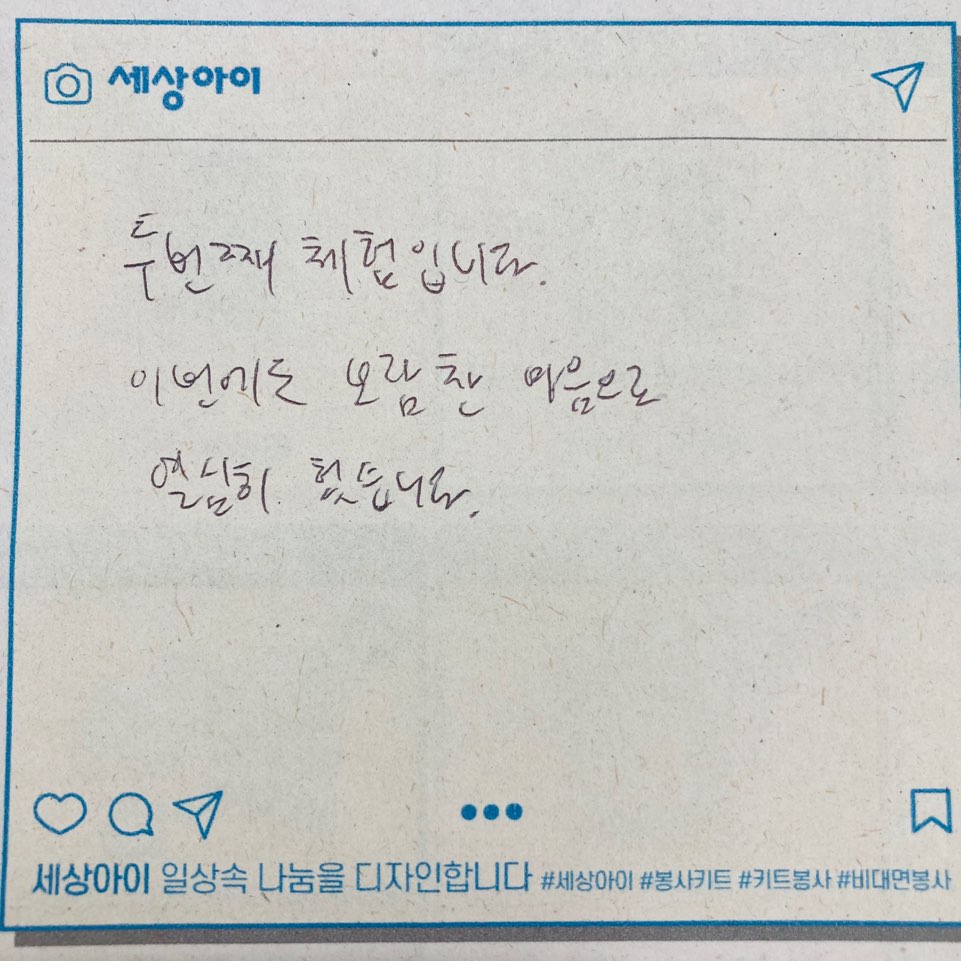 세상아이
두번째 체험입니다.
이번에도 보람찬 마음으로
열심히 했습니다.
세상아이 일상속 나눔을 디자인합니다 #세상아이 #봉사키트 #키트봉사 #비대면봉사